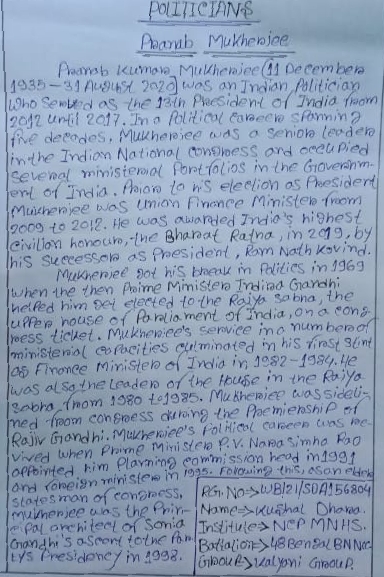 POLITICIANS
Pranab Mukherjee
Pranab Kumar Mukherjee (11 December
1935-31 August 2020) was an Indian Politician
who served as the 13th President of India from
2012 until 2017. In a Political career spanning
five decades, Mukherjee was a senior leader
in the Indian National congress and occupied
several ministerial Portfolios in the Governm-
ent of India. Prior to his election as President
Mukherjee was union Finance Minister from
2009 to 2012. He was awarded India's highest
civilian honour, the Bharat Ratna, in 2019, by
his successor as President, Ram Nath Kovind.
Mukherjee got his break in Politics in 1969
when the then Prime Minister Indira Gandhi
helped him get elected to the Rajya Sabha, the
upper house of Parliament of India, on a cong-
ress ticket. Mukherjee's service in a number of
ministerial capacities culminated in his first stint
as Finance Minister of India in 1982-1984. He
was also the Leader of the House in the Rajya
Sabha from 1980 to 1985. Mukherjee was sideli-
ned from congress during the Premiership of
Rajiv Gandhi. Mukherjee's Political career was re-
vived when Prime Minister P.V. Narasimha Rao
appointed him Planning commission head in 1991
and foreign minister in 1995. Following this, as an elder
statesman of congress,
Mukherjee was the Prin-
cipal architect of Sonia
Gandhi's ascent to the Par-
ty's Presidency in 1998.
RG. NO=> WB/21/SDA156804
Name=> Kushal Dhara.
Institute=> NCP MNHS.
Battalion=> 48 Bengal BN NCC
Group=> Kalyani Group.